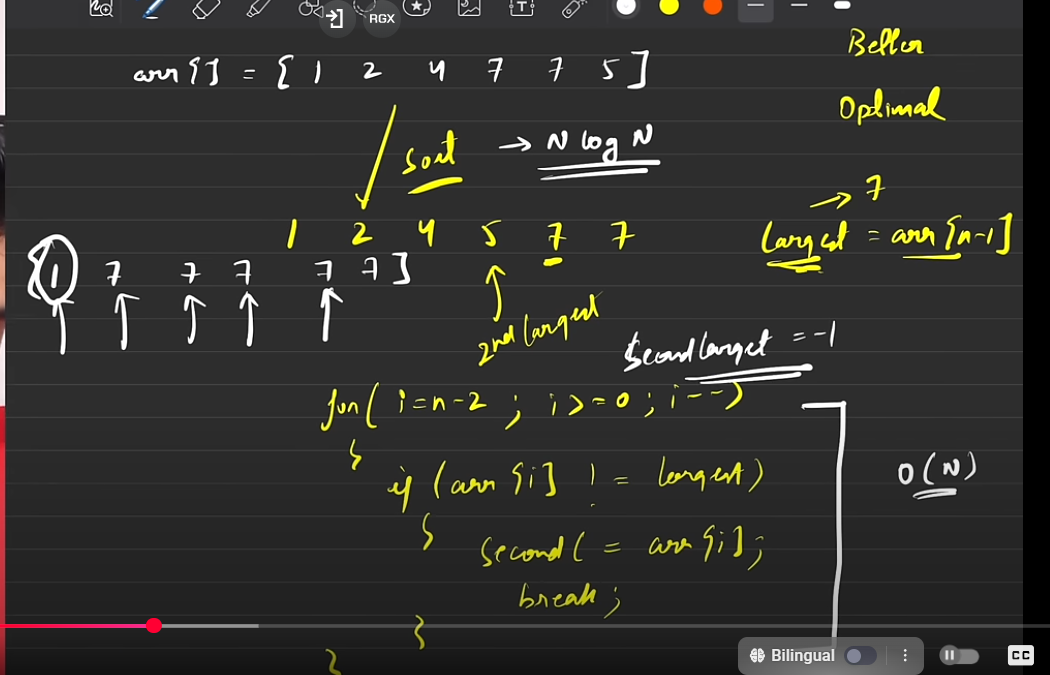 RGX
Better
arr[] = { 1 2 4 7 7 5 ]
Optimal
Sort → N log N
→ 7
1 2 4 5 7 7
largest = arr[n-1]
{1 7 7 7 7 7 ]
2nd largest
Secondlarget = -1
for( i=n-2 ; i>=0 ; i--)
{
if (arr[i] != largest)
O(N)
{
Second( = arr[i];
break;
}
}
Bilingual
CC